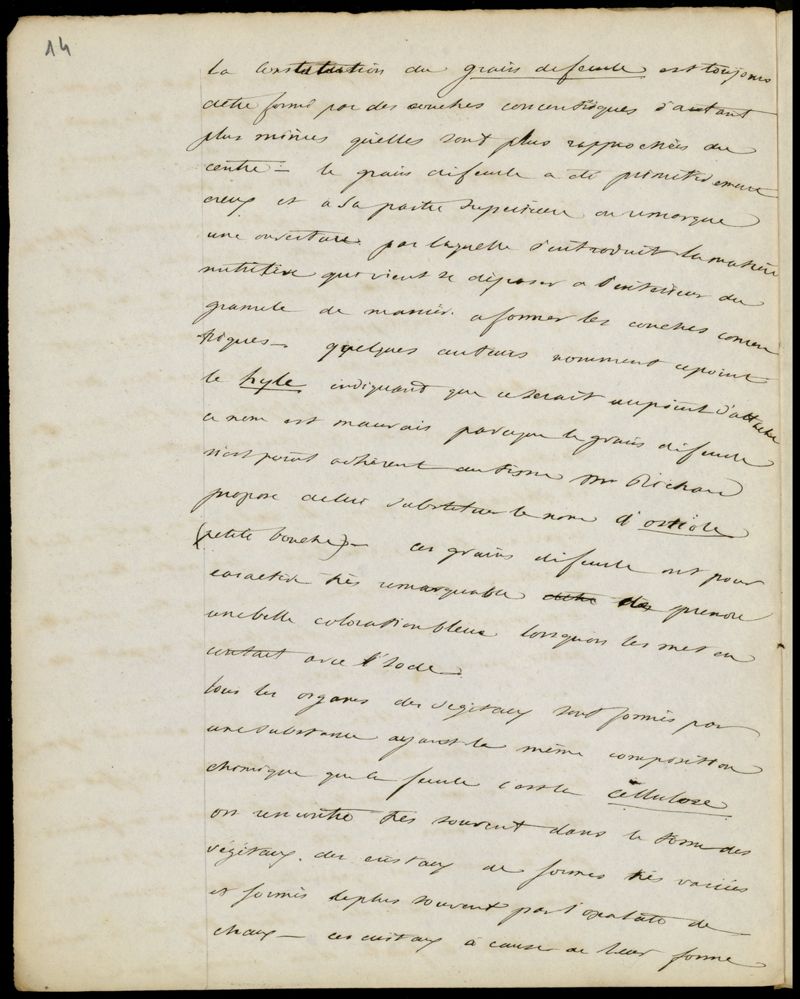 14
la constitution du grain de fecule est toujours
detre formé par des couches concentriques d'autant
plus minces quelles sont plus rapprochées du
centre — le grain de fecule a été primitivement
creux et a sa partie superieure on remarque
une ouverture par laquelle s'introduit la matiere
nutritive qui vient se déposer a l'interieur du
granule de maniere a former les couches concen
triques — quelques auteurs nomment ce point
le hyle indiquant que ce serait un point d'attache
ce nom est mauvais parceque le grain de fecule
n'est point adhérent au tissu Mr Richard
propose de lui substituer le nom d'ostiole
(petite bouche) — ces grains de fecule ont pour
caractere très remarquable prendre
une belle coloration bleue lorsquon les met en
contact avec l'iode —
tous les organes des vegetaux sont formés par
une substance ayant la même composition
chimique que la fecule c'est la cellulose
on rencontre très souvent dans le des
végétaux des cristaux de formes très variées
et formés le plus souvent par l'oxalate de
chaux — ces cristaux à cause de leur forme